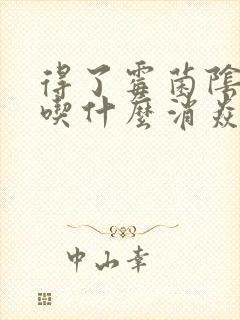 得了霉菌陰
喫什麼消炎
中山幸